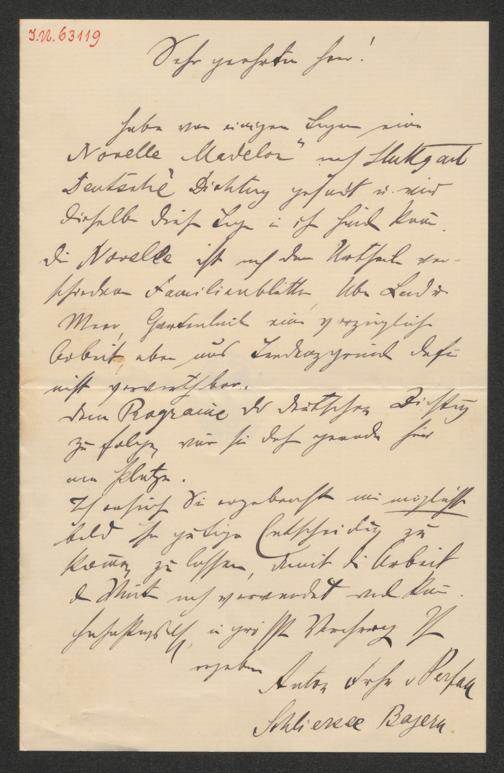 I.N. 63119
Sehr geehrter Herr!
habe vor einigen Tagen eine
Novelle Madelon" nach Stuttgart
Deutsche Dichtung gesandt u. wird
dieselbe dieser Tage in Ihre Hände kom̅.
Die Novelle ist nach dem Urtheile ver-
schiedener Familienblätter, Über Land u
Meer, Gartenlaube eine vorzügliche
Arbeit, aber aus Tendenzgründen dafür
nicht verwerthbar.
Dem Programme der deutschen Dichtung
zu folge, wäre sie doch gerade hier
am Platze.
Ich ersuche Sie ergebenst mir möglichst
bald Ihre gütige Entscheidung zu
kommen zu lassen, damit die Arbeit
noch verwendet werden kan̅.
Hochachtungsvoll, in größter Verehrung Ihr
ergebener
Anton Frhr v Perfall
Schliersee Bayern.